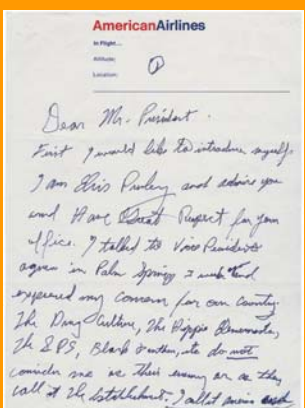 AmericanAirlines
In Flight...
Altitude;
Location;
Dear Mr. President.
First I would like to introduce myself.
I am Elvis Presley and admire you
and Have Great Respect for your
office. I talked to Vice President
Agnew in Palm Springs 3 weeks ago and
expressed my concern for our country.
The Drug Culture, The Hippie Elements,
The SDS, Black Panthers, etc do not
consider me as their enemy or as they
call it The Establishment. I call it America and